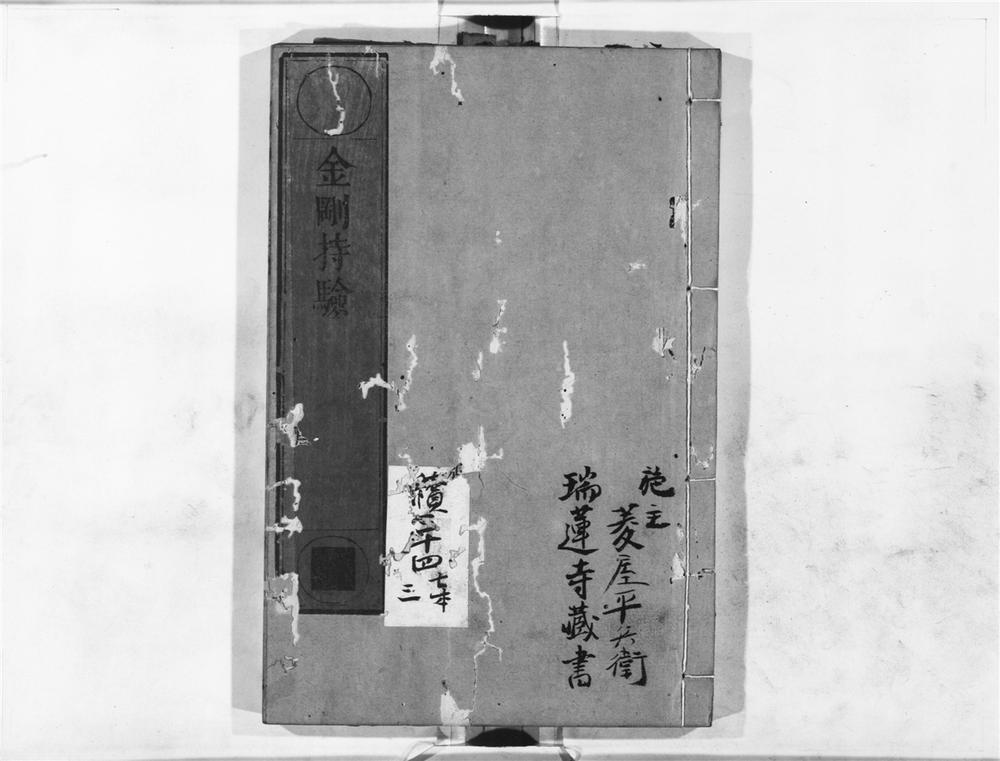 施主
菱屋平兵衛
瑞蓮寺藏書
二十四
三
金剛持驗